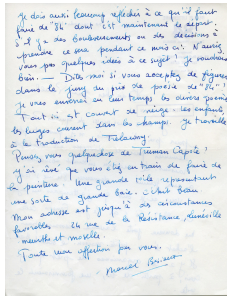 Je dois aussi beaucoup réfléchir à ce qu'il faut
faire de "84" dont c'est maintenant le départ.
Il y a des bouleversements ou des décisions à
prendre ce sera pendant ce mois ci. N'auriez
vous pas quelques idées à ce sujet? Je voudrais
bien. — Dites moi si vous acceptez de figurer
dans le jury du prix de poésie de "84"!
Je vous enverrai en leur temps les divers poèmes
Tout ici est couvert de neige. Les enfants
les luges courent dans les champs. Je travaille
à la traduction de
Pensez vous quelque chose de Truman Capote?
J'ai rêvé que je vous ai en train de faire de
la peinture. Une grande toile représentant
une sorte de grande baie. C'était beau
Mon adresse est jusqu'à des circonstances
favorables. 24 rue de la Résistance, Lunéville
meurthe et moselle.
Toute mon affection pour vous.
Marcel